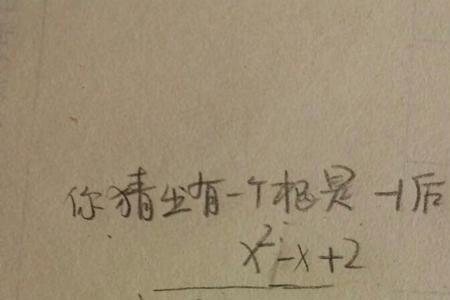 你猜出有一个根是-1后
x²-x+2